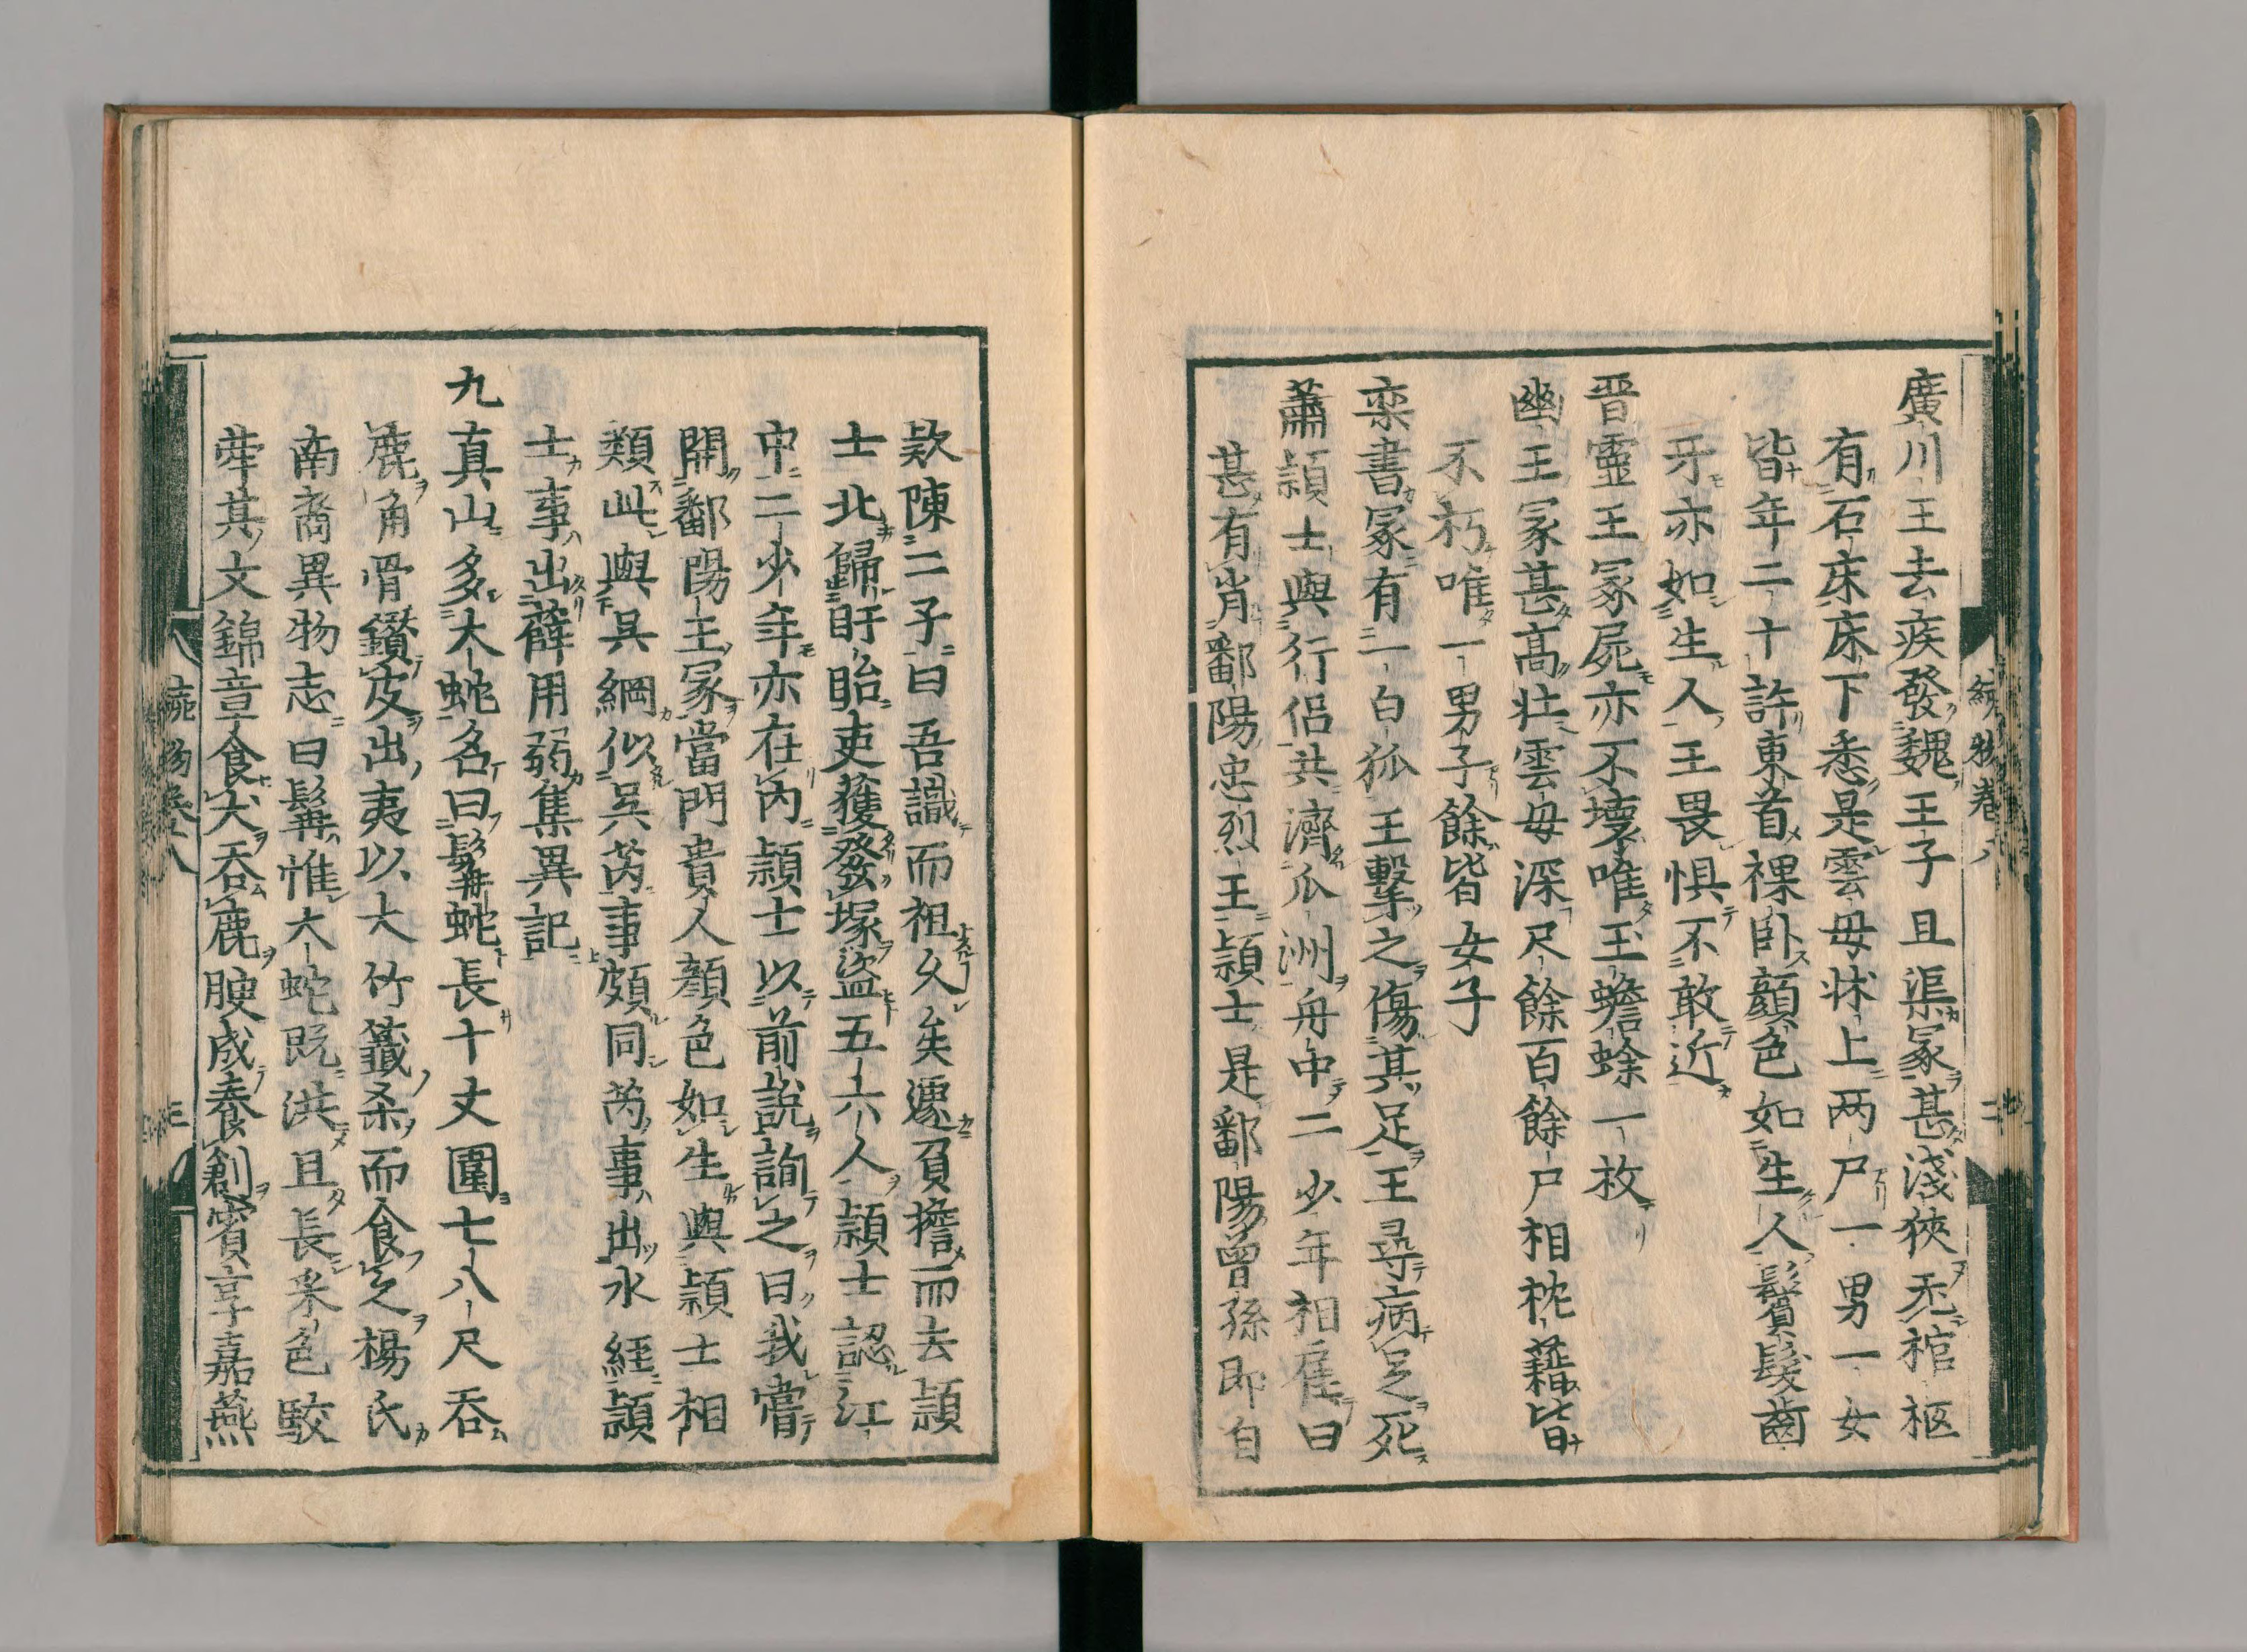 廣川王去疾發魏王子且渠冢甚淺狹无棺柩
有石床床下悉是雲母牀上两尸一男一女
皆年二十許東首裸卧顔色如生人鬢髮齒
牙亦如生人王畏惧不敢近
晋靈王冢屍亦不壊唯玉蟾蜍一枚
幽王冢甚髙壮雲母深尺餘百餘尸相枕藉皆
不朽唯一男子餘皆女子
栾書冢有一白狐王擊之傷其足王尋病足死
蕭頴士與行侣共濟瓜洲舟中二少年相雇曰
甚有肖鄱陽忠烈王頴士是鄱陽曾孫即自
欵陳二子曰吾識而祖乆矣遽負擔而去頴
士北歸盱眙吏獲發塚盗五六人頴士認江
中二少年亦在内頴士以前說詢之曰我嘗
開鄱陽王冢當門貴人顔色如生與頴士相
類此與吴綱似呉芮事頗同芮事出水經頴
士事出薛用弱集異記
九真山多大蛇名曰髯蛇長十丈圍七八尺吞
鹿角骨鑚皮出夷以大竹籤殺而食之楊氏
南裔異物志曰髯惟大蛇既洪且長采色駮
犖其文錦章食犬吞鹿腴成養創賓享嘉燕